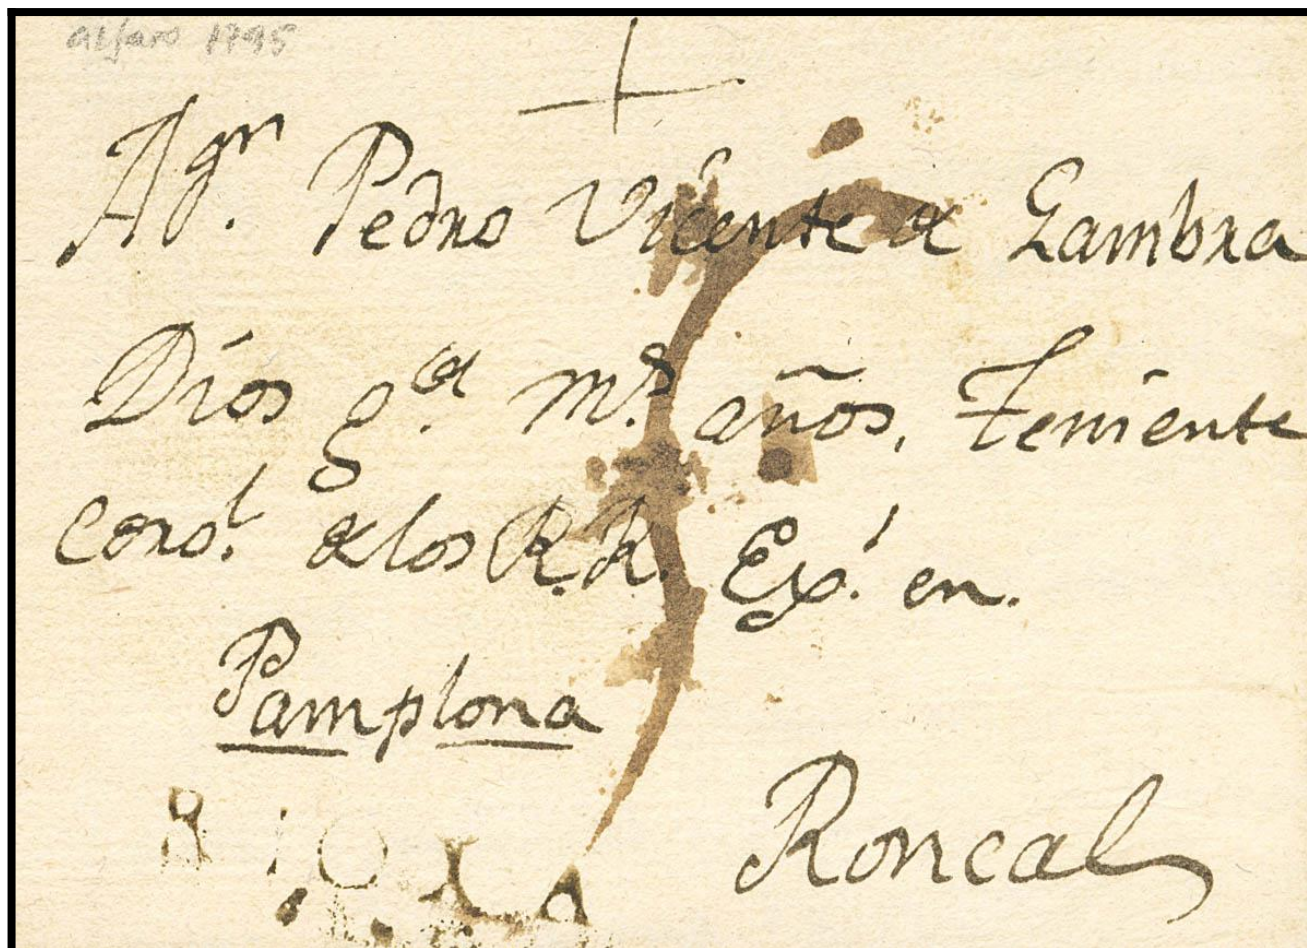 alfaro 1795
A Dn. Pedro Vicente de Gambra
Dios gde. ms. años, Teniente
Corol. de los R.R. Exs. en.
Pamplona
RIOXA
Roncal